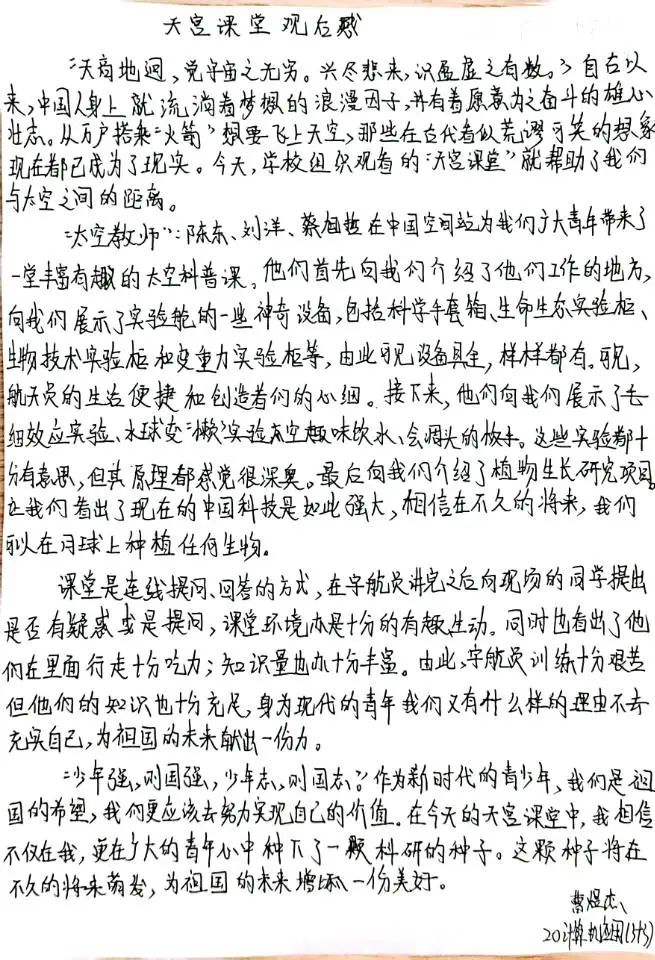 天宫课堂观后感
“天高地迥,觉宇宙之无穷。兴尽悲来,识盈虚之有数。”自古以
来,中国人身上就流淌着梦想的浪漫因子,并有着愿意为之奋斗的雄心
壮志。从万户搭乘“火箭”想要飞上天空,那些在古代看似荒谬可笑的想象
现在都已成为了现实。今天,学校组织观看的“天宫课堂”就帮助了我们
与太空之间的距离。
“太空教师”:陈东、刘洋、蔡旭哲在中国空间站为我们广大青年带来了
一堂丰富有趣的太空科普课。他们首先向我们介绍了他们工作的地方,
向我们展示了实验舱的一些神奇设备,包括科学手套箱、生命生态实验柜、
生物技术实验柜和变重力实验柜等,由此可见设备具全,样样都有。可见,
航天员的生活便捷和创造者们的心细。接下来,他们向我们展示了毛
细效应实验、水球变“懒”实验、太空趣味饮水、会调头的扳手。这些实验都十
分有意思,但其原理都感觉很深奥。最后向我们介绍了植物生长研究项目。
让我们看出了现在的中国科技是如此强大,相信在不久的将来,我们
可以在月球上种植任何生物。
课堂是连线提问、回答的方式,在宇航员讲完之后向现场的同学提出
是否有疑惑或是提问,课堂环境亦是十分的有趣生动。同时也看出了他
们在里面行走十分吃力;知识量也亦十分丰富。由此,宇航员训练十分艰苦
但他们的知识也十分充足,身为现代的青年我们又有什么样的理由不去
充实自己,为祖国的未来献出一份力。
“少年强,则国强,少年志,则国志。”作为新时代的青少年,我们是祖
国的希望,我们更应该去努力实现自己的价值。在今天的天宫课堂中,我相信
不仅在我,更在广大的青年心中种下了一颗科研的种子。这颗种子将在
不久的将来萌发,为祖国的未来增添一份美好。
曹煜杰
20计算机应用(3+3)